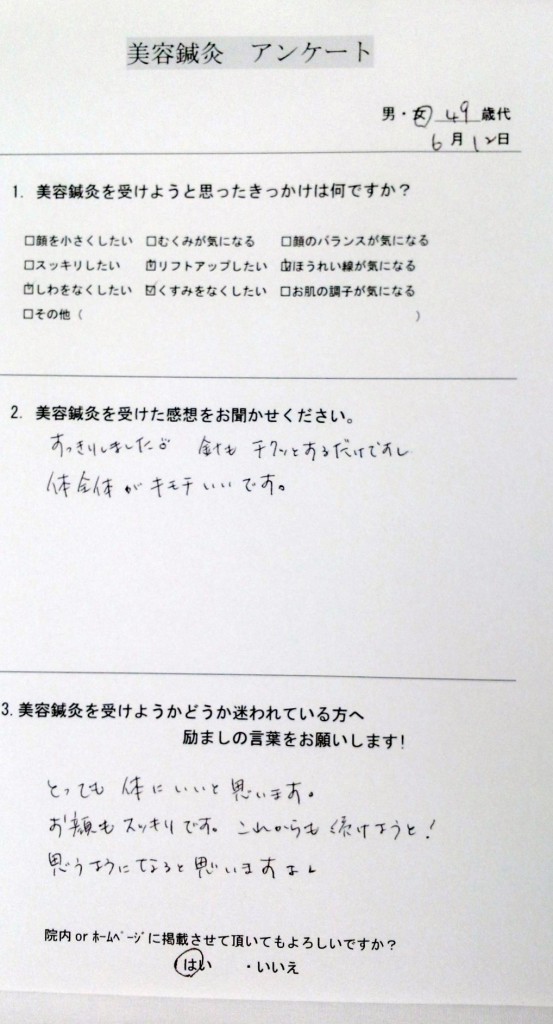 美容鍼灸　アンケート
男・女 49 歳代
6月12日
1. 美容鍼灸を受けようと思ったきっかけは何ですか？
□顔を小さくしたい □むくみが気になる □顔のバランスが気になる
□スッキリしたい ☑リフトアップしたい ☑ほうれい線が気になる
☑しわをなくしたい ☑くすみをなくしたい □お肌の調子が気になる
□その他（　　　）
2. 美容鍼灸を受けた感想をお聞かせください。
すっきりしました。 針も チクッとするだけですし
体全体が キモチいいです。
3.美容鍼灸を受けようかどうか迷われている方へ
励ましの言葉をお願いします!
とっても 体にいいと思います。
お顔もスッキリです。これからも 続けようと!
思うようになると思いますよ
院内orﾎｰﾑﾍﾟｰｼﾞに掲載させて頂いてもよろしいですか？
はい ・いいえ